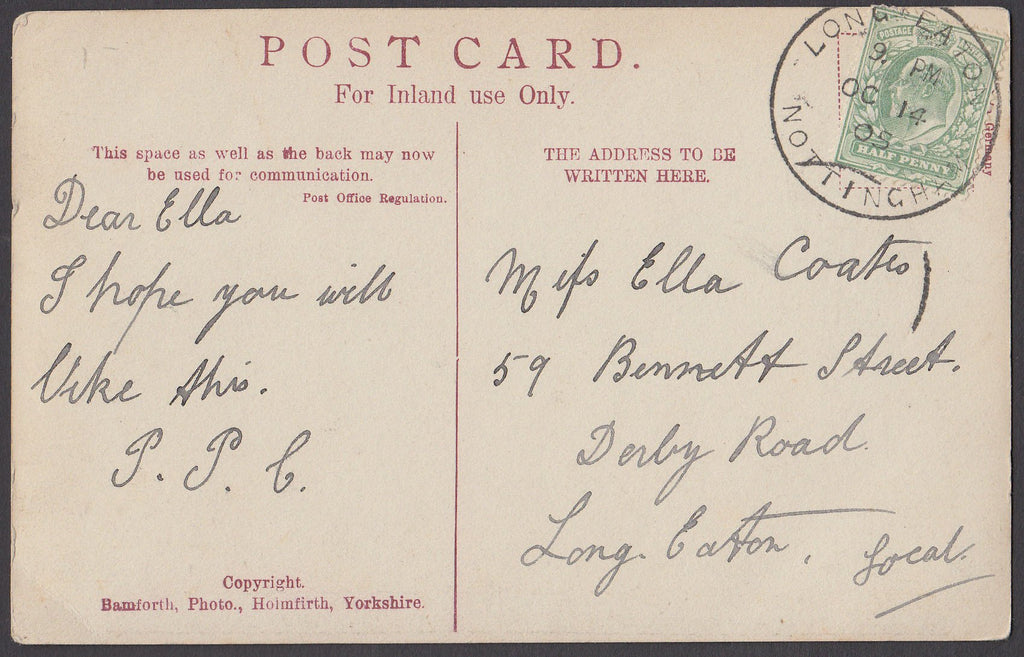 POST CARD.
For Inland use Only.
This space as well as the back may now
be used for communication.
Post Office Regulation.
THE ADDRESS TO BE
WRITTEN HERE.
LONG EATON
9 PM
OC 14
05
NOTTINGH
POSTAGE
HALF PENNY
Germany
Dear Ella
I hope you will
like this.
P. P. C.
Miſs Ella Coates
59 Bennett Street.
Derby Road
Long. Eaton, local.
Copyright.
Bamforth, Photo., Holmfirth, Yorkshire.